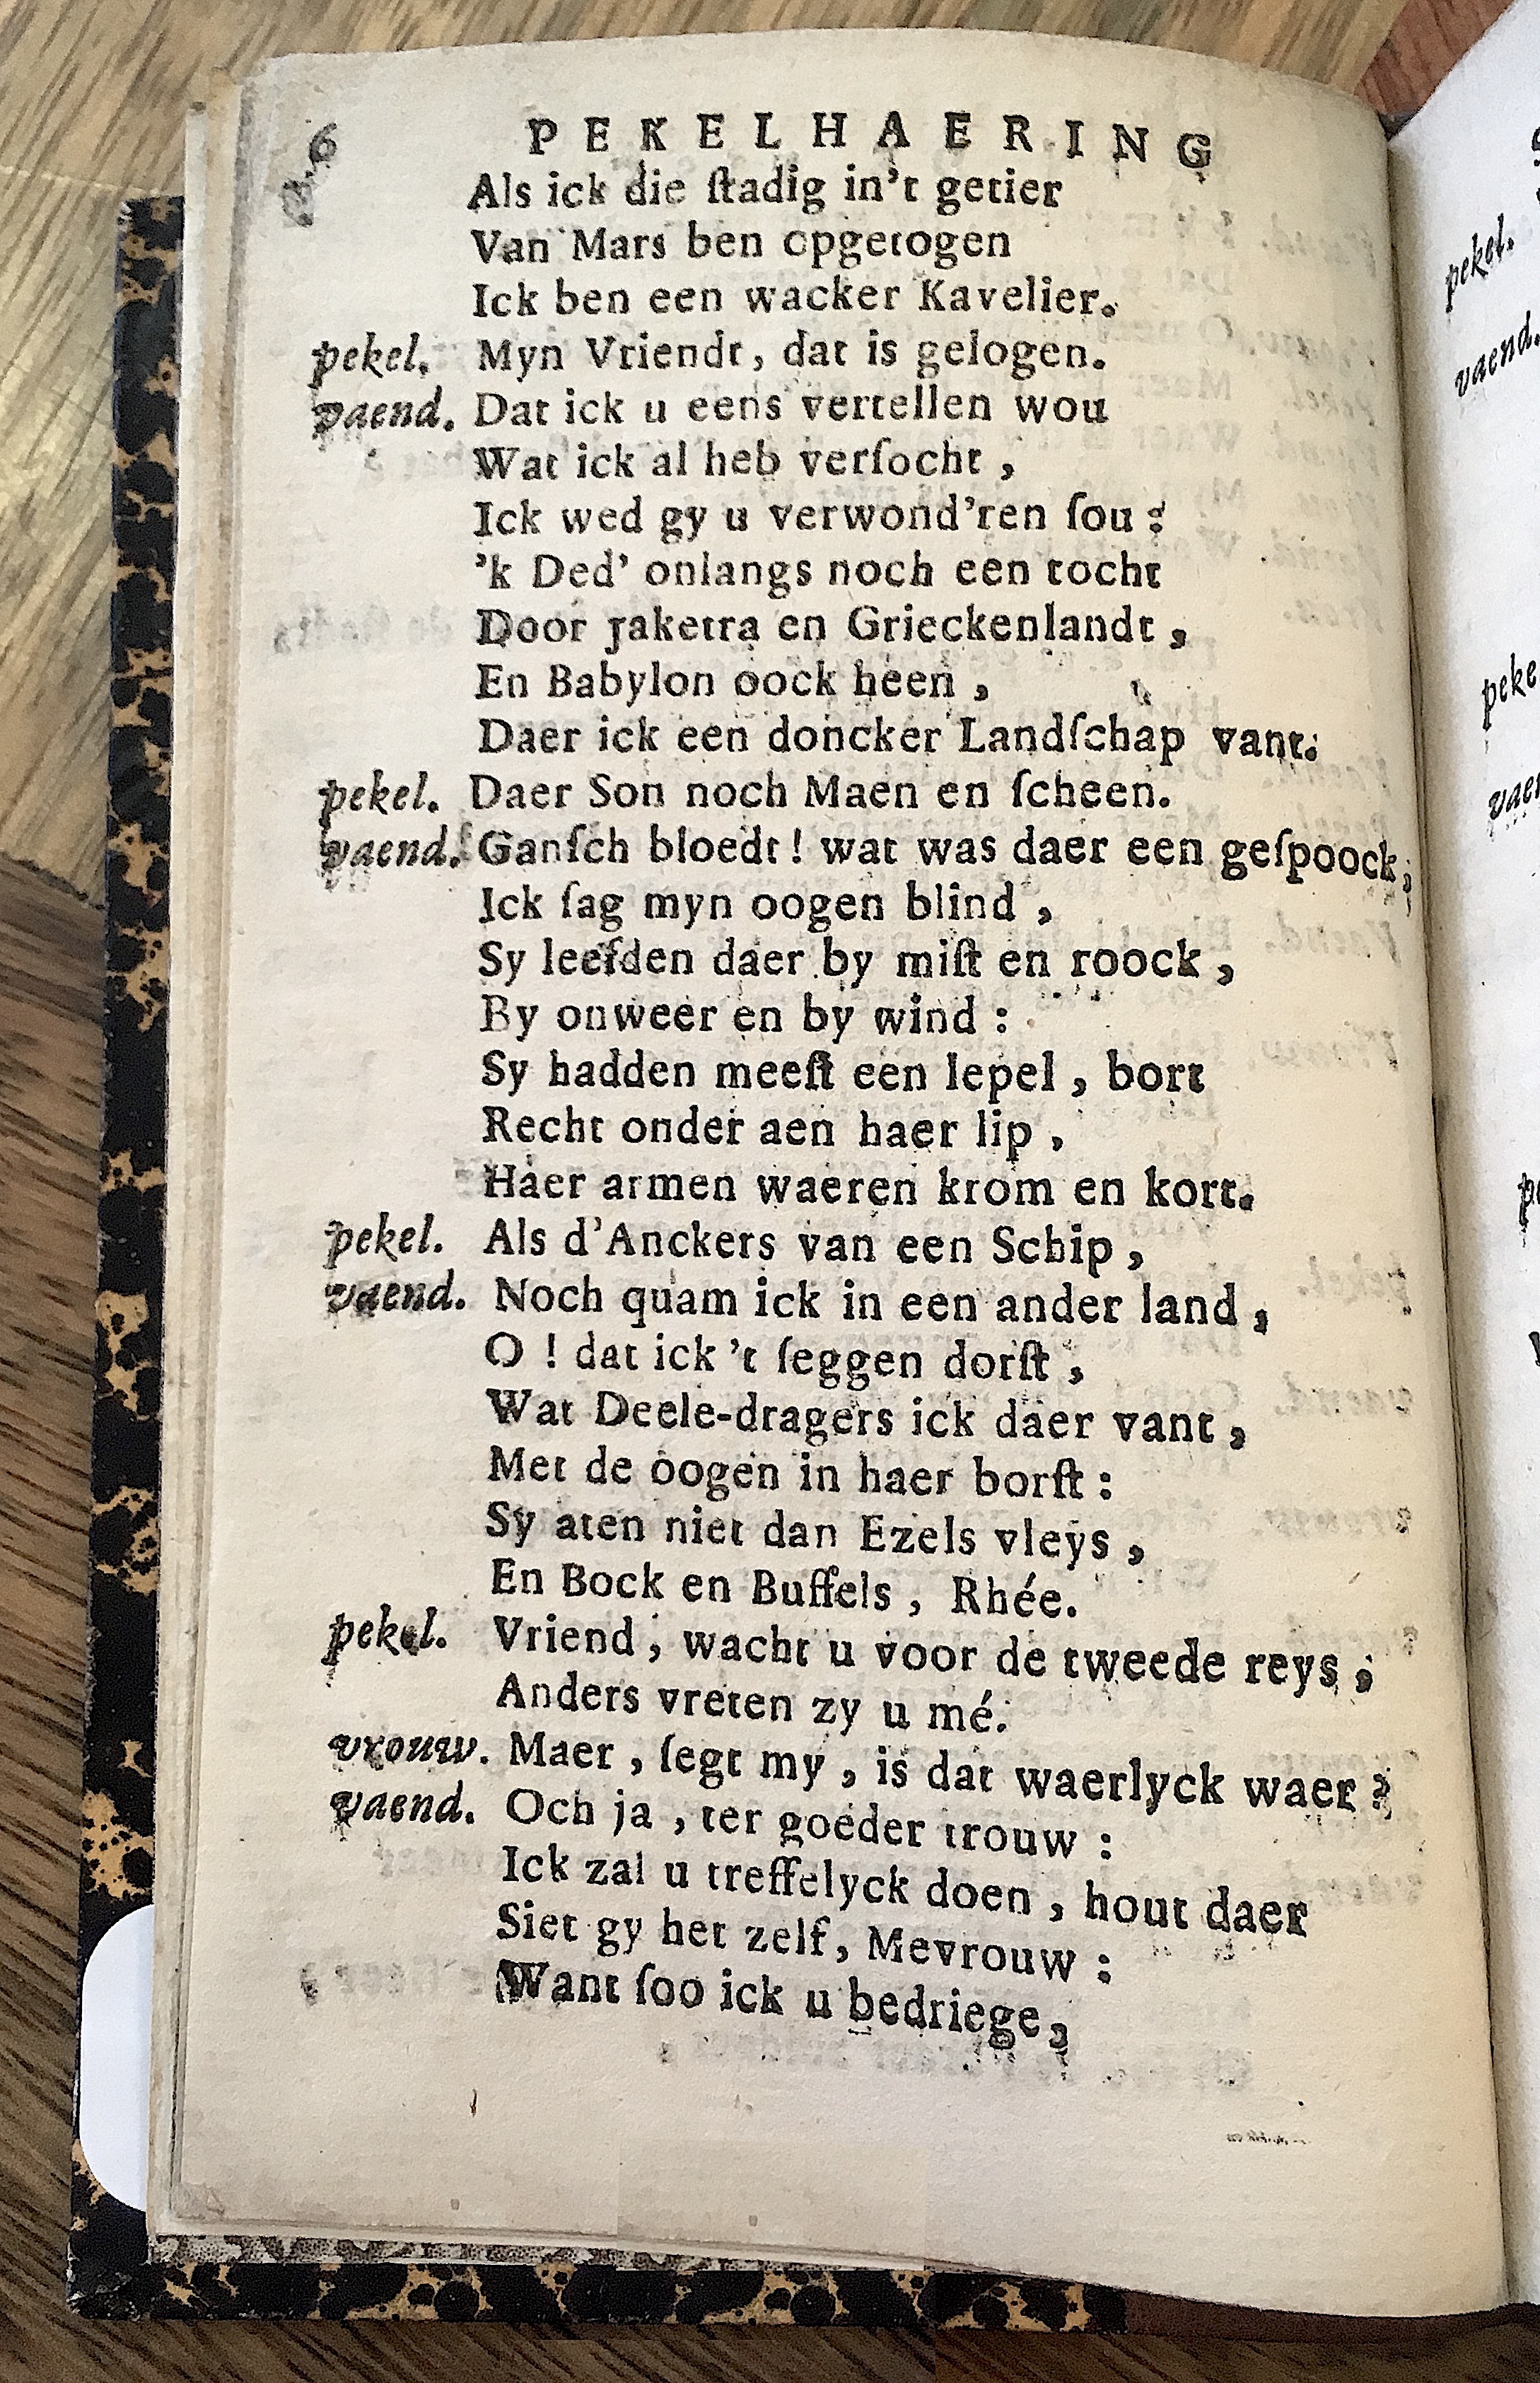 6 PEKELHAERING
Als ick die ſtadig in't getier
Van Mars ben opgetogen
Ick ben een wacker Kavelier.
pekel. Myn Vriendt, dat is gelogen.
vaend. Dat ick u eens vertellen wou
Wat ick al heb verſocht,
Ick wed gy u verwond'ren ſou:
'k Ded' onlangs noch een tocht
Door Jaketra en Grieckenlandt,
En Babylon oock heen,
Daer ick een doncker Landſchap vant.
pekel. Daer Son noch Maen en ſcheen.
vaend. Ganſch bloedt! wat was daer een geſpoock,
Ick ſag myn oogen blind,
Sy leefden daer by miſt en roock,
By onweer en by wind:
Sy hadden meeſt een lepel, bort
Recht onder aen haer lip,
Haer armen waeren krom en kort.
pekel. Als d'Anckers van een Schip,
vaend. Noch quam ick in een ander land,
O! dat ick 't ſeggen dorſt,
Wat Deele-dragers ick daer vant,
Met de oogen in haer borſt:
Sy aten niet dan Ezels vleys,
En Bock en Buffels, Rhée.
pekel. Vriend, wacht u voor de tweede reys,
Anders vreten zy u mé.
vrouw. Maer, ſegt my, is dat waerlyck waer?
vaend. Och ja, ter goeder trouw:
Ick zal u treffelyck doen, hout daer
Siet gy het zelf, Mevrouw:
Want ſoo ick u bedriege,
pekel.
vaend.